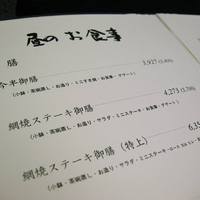 昼のお食事
膳
今半御膳 3,927
(小鉢・茶碗蒸し・お造り・ミニすき焼・お食事・デザート)
網焼ステーキ御膳 4,273
(小鉢・茶碗蒸し・お造り・サラダ・ミニステーキ・お食事・デザート)
網焼ステーキ御膳(特上) 6,35
(小鉢・茶碗蒸し・お造り・サラダ・ミニステーキ